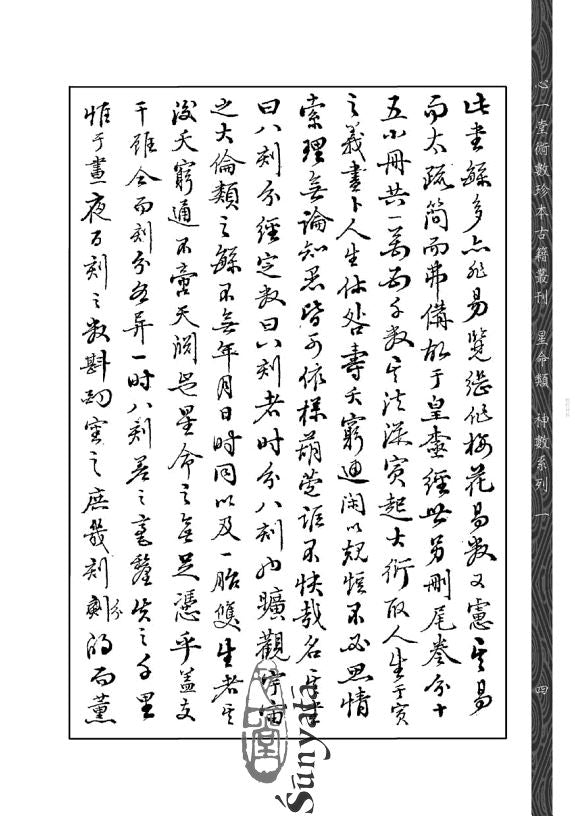 心一堂術數珍本古籍叢刊　星命類　神數系列　一
四
此書繇多亦非易覽繼作梅花易數又慮其易
而太疏簡而弗備故于皇極經世另刪尾卷分十
五小冊共一萬兩千數其法從寅起大衍取人生于寅
之義盡卜人生休咎壽夭窮通閑以規不必思情
索理無論知愚皆可依樣葫蘆誰不快哉名其書
曰八刻分經定數曰八刻者時分八刻也曠觀宇宙
之大倫類之繇不無年月日時同以及一胎雙生者其
後夭窮通不啻天淵豈星命之無足憑乎蓋支
干雖合而刻分各異一時八刻差之毫釐失之千里
惟于晝夜百刻之數斟酌密之庶幾刻分的而薰
心一堂
Śūnyatā